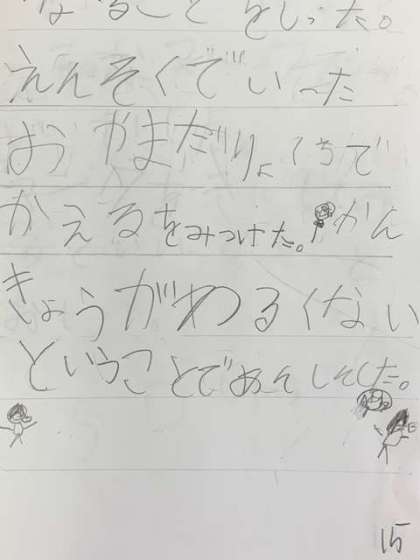 なることをしった。
えんそくでいった
おやまだりょくちで
かえるをみつけた。かん
きょうがわるくない
ということであんしんした。
15